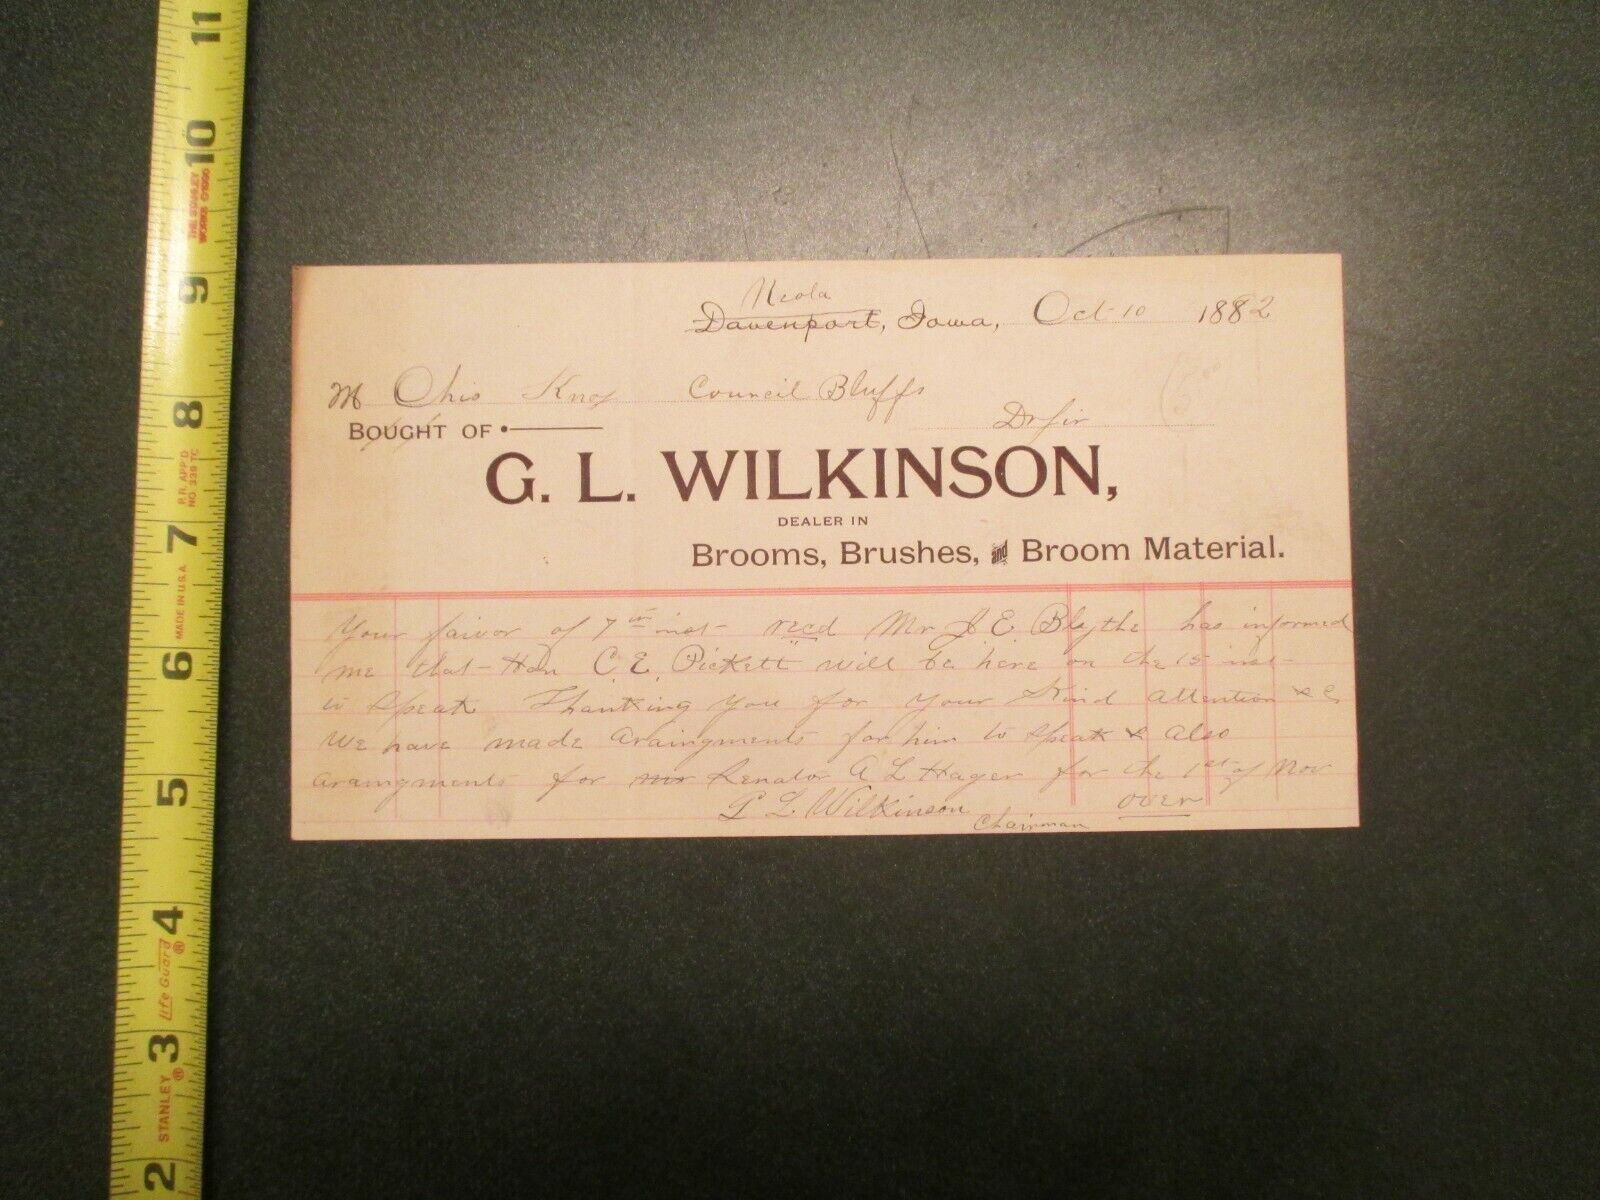 11
10
THE STANLEY
WORKS ©1990
9
8
P. R. APP'D
NO. 339 TC
7
MADE IN U.S.A.
6
5
4
Life Guard®
3
STANLEY®
2
Neola
Davenport, Iowa, Oct 10 1882
M Chis Knox Council Bluffs
BOUGHT OF
Dr Sir
G. L. WILKINSON,
DEALER IN
Brooms, Brushes, and Broom Material.
Your faivor of 7th inst recd Mr J. E. Blythe has informed
me that Hon C. E. Pickett will be here on the 15 inst
to speak Thanking you for your Kind Attention & C
We have made araingments for him to speak & Also
araingments for mr Senator A L Hager for the 1st of Nov
G L. Wilkinson
Chairman
over